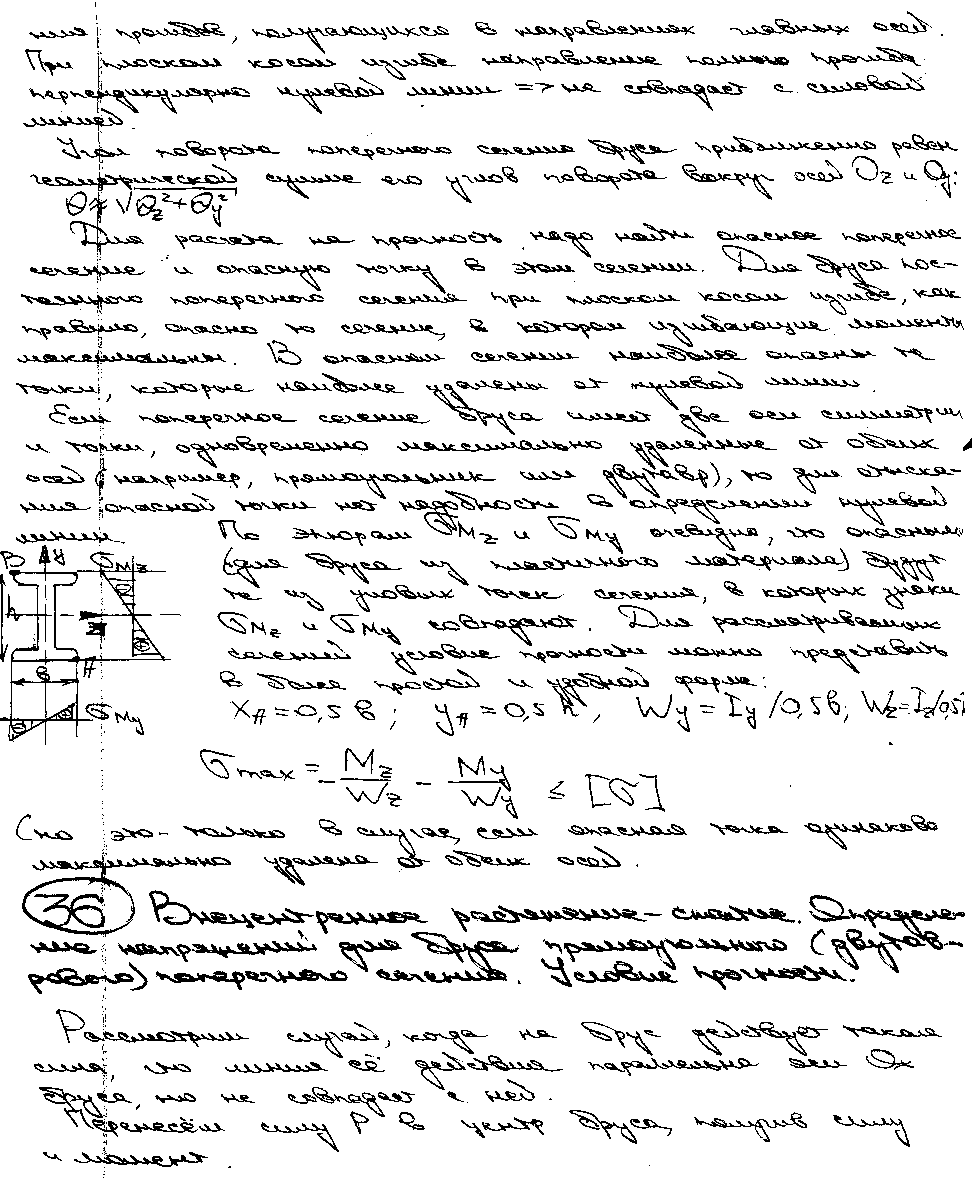 ния прогибов, получающихся в направлениях главных осей.
При плоском косом изгибе направление полного прогиба
перпендикулярно нулевой линии => не совпадает с силовой
линией.
Угол поворота поперечного сечения бруса приближенно равен
геометрической сумме его углов поворота вокруг осей Oz и Oy:
θ ≈ √θz²+θy²
Для расчета на прочность надо найти опасное поперечное
сечение и опасную точку в этом сечении. Для бруса пос-
тоянного поперечного сечения при плоском косом изгибе, как
правило, опасно то сечение, в котором изгибающие моменты
максимальны. В опасном сечении наиболее опасны те
точки, которые наиболее удалены от нулевой линии.
Если поперечное сечение бруса имеет две оси симметрии
и точки, одновременно максимально удаленные от обеих
осей (например, прямоугольник или двутавр), то для отыска-
ния опасной точки нет надобности в определении нулевой
линии.
По эпюрам σMz и σMy очевидно, что опасными
(для бруса из пластичного материала) будут
те из угловых точек сечения, в которых знаки
σMz и σMy совпадают. Для рассматриваемых
сечений условие прочности можно представить
в более простой и удобной форме:
B y σMz
h
z
в A
σMy
xA = 0,5 в; yA = 0,5 h, Wy = Iy/0,5в; Wz = Iz/0,5h
σmax = - Mz/Wz - My/Wy ≤ [σ]
(но это - только в случае, если опасная точка одинаково
максимально удалена от обеих осей.
36 Внецентренное растяжение-сжатие. Определе-
ние напряжений для бруса прямоугольного (двутав-
рового) поперечного сечения. Условие прочности.
Рассмотрим случай, когда на брус действует такая
сила, что линия её действия параллельна оси Ox
бруса, но не совпадает с ней.
Перенесём силу P в центр бруса, получив силу
и момент.